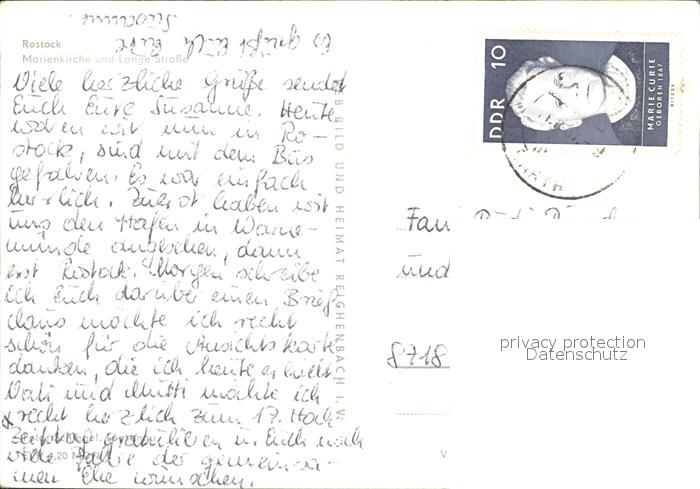 Rostock
Marienkirche und Lange Straße
Viele herzliche Grüße sendet
Euch Eure Susanne. Heute
waren wir nun in Ro-
stock, sind mit dem Bus
gefahren. Es war einfach
herrlich. Zuerst haben wir
uns den Hafen in Warne-
münde angesehen, dann
erst Rostock. Morgen schreibe
ich Euch darüber einen Brief.
Claus möchte ich recht
schön für die Ansichtskarte
danken, die ich heute erhielt.
Vati und Mutti möchte ich
recht herzlich zum 17. Hoch-
zeitstag gratulieren u. Euch noch
viele Jahre der gemeinsa-
men Ehe wünschen.
Es grüßt Euch Eure
Susanne.
BILD UND HEIMAT REICHENBACH i. V.
DDR 10
MARIE CURIE
GEBOREN 1867
Fam
und
8718
privacy protection
Datenschutz
V